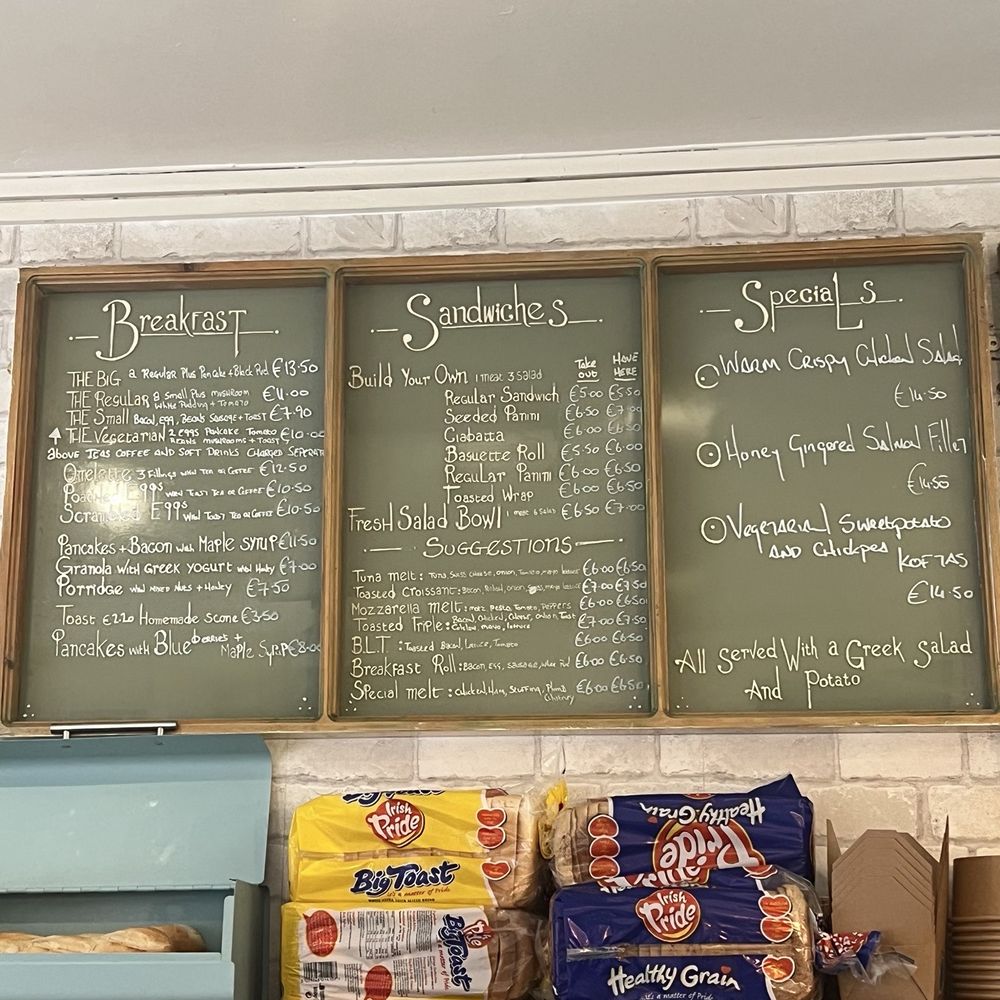 Breakfast
THE BIG a Regular Plus Pancake + Black Pud €13.50
THE Regular a Small Plus mushroom €11.00
White Pudding + Tomato
THE Small Bacon, Egg, Beans Sausage + TOAST €7.90
THE Vegetarian 2 eggs Pancake Tomato €10.00
Beans mushrooms + Toast
above TEAS COFFEE AND SOFT DRINKS CHARGED SEPERATE
Omelette 3 Fillings with Tea or Coffee €12.50
Poached Eggs with Toast Tea or Coffee €10.50
Scrambled Eggs with Toast Tea or Coffee €10.50
Pancakes + Bacon with Maple syrup €11.50
Granola with Greek yogurt with Honey €7.00
Porridge with mixed Nuts + Honey €7.50
Toast €2.20 Homemade scone €3.50
Pancakes with Blueberries +
Maple Syrup €8.00
Sandwiches
Take Out Have Here
Build Your Own 1 meat 3 salad
Regular Sandwich €5.00 €5.50
Seeded Panini €6.50 €7.00
Ciabatta €6.00 €6.50
Baguette Roll €5.50 €6.00
Regular Panini €6.00 €6.50
Toasted Wrap €6.00 €6.50
Fresh Salad Bowl 1 meat 6 salads €6.50 €7.00
Suggestions
Tuna melt: Tuna, Swiss Cheese, onion, Tomato, mayo €6.00 €6.50
Toasted Croissant: Bacon, onion, Swiss, €6.00 €7.00
Mozzarella melt: mozz, Pesto, Tomato, Peppers €6.00 €6.50
Toasted Triple: Bacon, Chicken, Cheese, onion, Toast €7.00 €7.50
mayo, lettuce
B.L.T: Toasted Bacon, Lettuce, Tomato €6.00 €6.50
Breakfast Roll: Bacon, Egg, Sausage, White Pud €6.00 €6.50
Special melt: Chicken, Ham, Stuffing, Plum €6.00 €6.50
Chutney
Specials
Warm Crispy Chicken Salad
€14.50
Honey Gingered Salmon Fillet
€14.50
Vegetarian Sweetpotato
AND Chickpea KOFTAS
€14.50
All Served With a Greek Salad
And Potato
Big Toast
Irish Pride
Big Toast
it's a matter of Pride
Irish Pride
Big Toast
Healthy Grain
Pride
Irish Pride
Healthy Grain
it's a matter of Pride